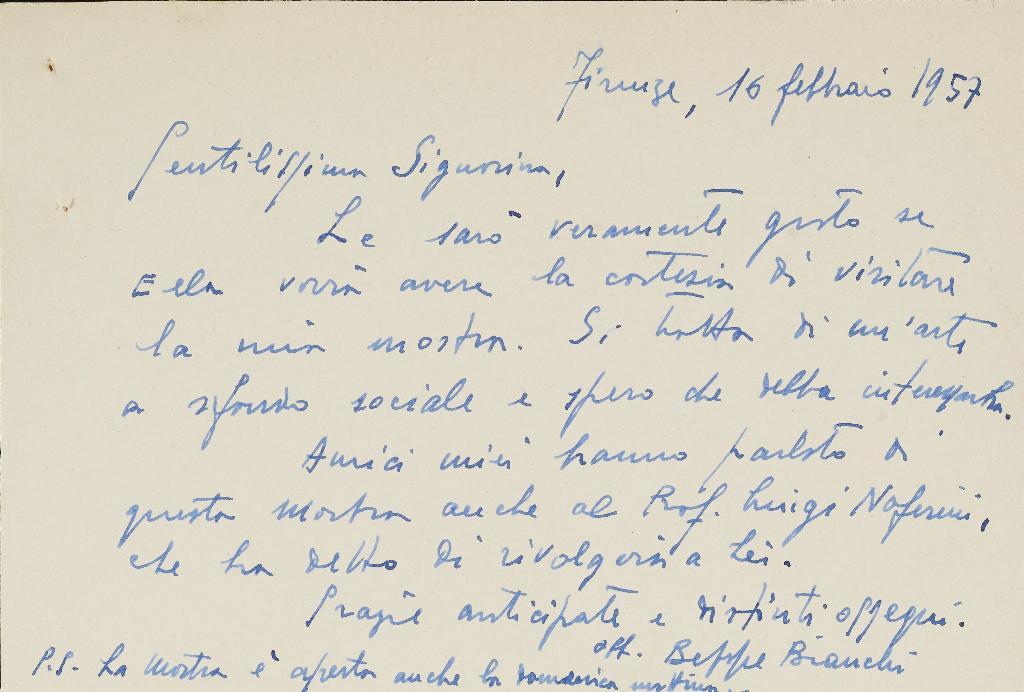 Firenze, 16 febbraio 1957
Gentilissima Signorina,
Le sarò veramente grato se
Ella vorrà avere la cortesia di visitare
la mia mostra. Si tratta di un'arte
a sfondo sociale e spero che debba interessarla.
Amici miei hanno parlato di
questa mostra anche al Prof. Luigi
che ha detto di rivolgersi a Lei.
Grazie anticipate e distinti ossequi.
aff. Beppe Bianchi
P.S. La mostra è aperta anche la domenica mattina.